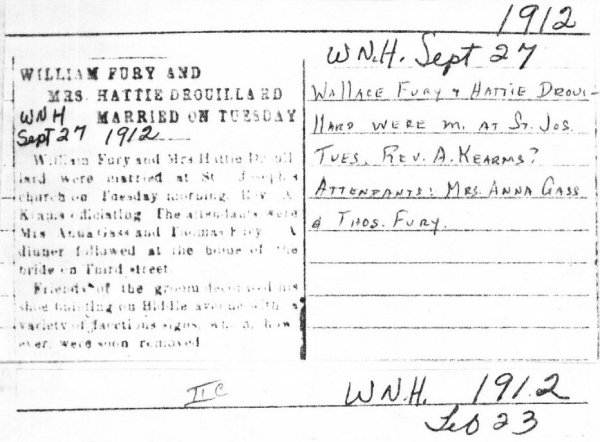 1912
WILLIAM FURY AND
MRS. HATTIE DROUILLARD
MARRIED ON TUESDAY
WNH
Sept 27 1912
William Fury and Mrs Hattie Drouil
lard were married at St. Joseph's
church on Tuesday morning, Rev. A
officiating The attendants were
Mrs Anna Gass and Thomas Fury A
dinner followed at the home of the
bride on Third street.
Friends of the groom decorated his
shoe building on Biddle avenue with a
variety of facetious signs, which, how
ever, were soon removed
W.N.H. Sept 27
WALLACE FURY & HATTIE DROUI-
LLARD WERE M. AT ST. JOS.
TUES. REV. A. KEARMS?
ATTENDANTS: MRS. ANNA GASS
& THOS. FURY.
II C
W.N.H. 1912
Feb 23